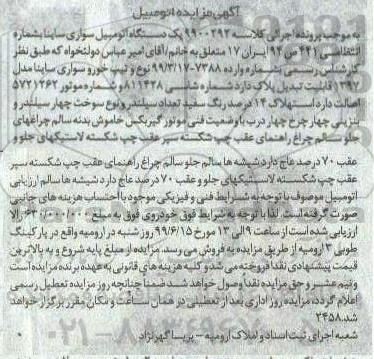 آگهی مزایده اتومبیل
به موجب پرونده اجرائی کلاسه ۹۹۰۰۲۹۲ یک دستگاه اتومبیل سواری ساینا بشماره
انتظامی ۴۴۱ ص ۹۴ ایران ۱۷ متعلق به خانم/آقای امیر عباس دولتخواه که طبق نظر
کارشناس رسمی بشماره وارده ۷۳۸۸-۹۹/۳/۱۷ نوع و تیپ خورو سواری ساینا مدل
۱۳۹۷ قابلیت تبدیل پلاک دارد شماره شاسی ۸۱۱۴۲۸ و شماره موتور ۵۷۲۱۴۶۲
اصالت دارد استهلاک ۱۴ درصد رنگ سفید تعداد سیلندر و نوع سوخت چهار سیلندر و
بنزینی چهار چرخ چهار درب با وضعیت فنی موتور گیربکس خاموش بدنه سالم چراغهای
جلو سالم چراغ راهنمای عقب چپ شکسته سپر عقب چپ شکسته لاستیکهای جلو و
عقب ۷۰ درصد عاج دارد شیشه ها سالم جلو سالم چراغ راهنمای عقب چپ شکسته سپر
عقب چپ شکسته لاستیکهای جلو و عقب ۷۰ درصد عاج دارد شیشه ها سالم ارزیابی
اتومبیل موصوف با توجه به شرایط فنی و فیزیکی موجود با احتساب هزینه های جانبی
صورت گرفته است. لذا با توجه به شرایط فوق خودروی فوق به مبلغ ۶۳۰/۰۰۰/۰۰۰ ریال
ارزیابی شده است از ساعت ۹ الی ۱۲ مورخ ۹۹/۶/۱۵ روز شنبه در ارومیه واقع در پارکینگ
طوبی ۳ ارومیه از طریق مزایده به فروش می رسد. مزایده از مبلغ پایه شروع و به بالاترین
قیمت پیشنهادی نقدا فروخته می شد و کلیه هزینه های قانونی به عهده برنده مزایده است
و نیم عشر و حق مزایده نقدا وصول خواهد شد ضمنا چنانچه روز مزایده تعطیل رسمی
اعلام گردد، مزایده روز اداری بعد از تعطیلی در همان ساعت و مکان مقرر برگزار خواهد
شد. ۲۴۵۸
شعبه اجرای ثبت اسناد و املاک ارومیه - پریسا گهرنژاد